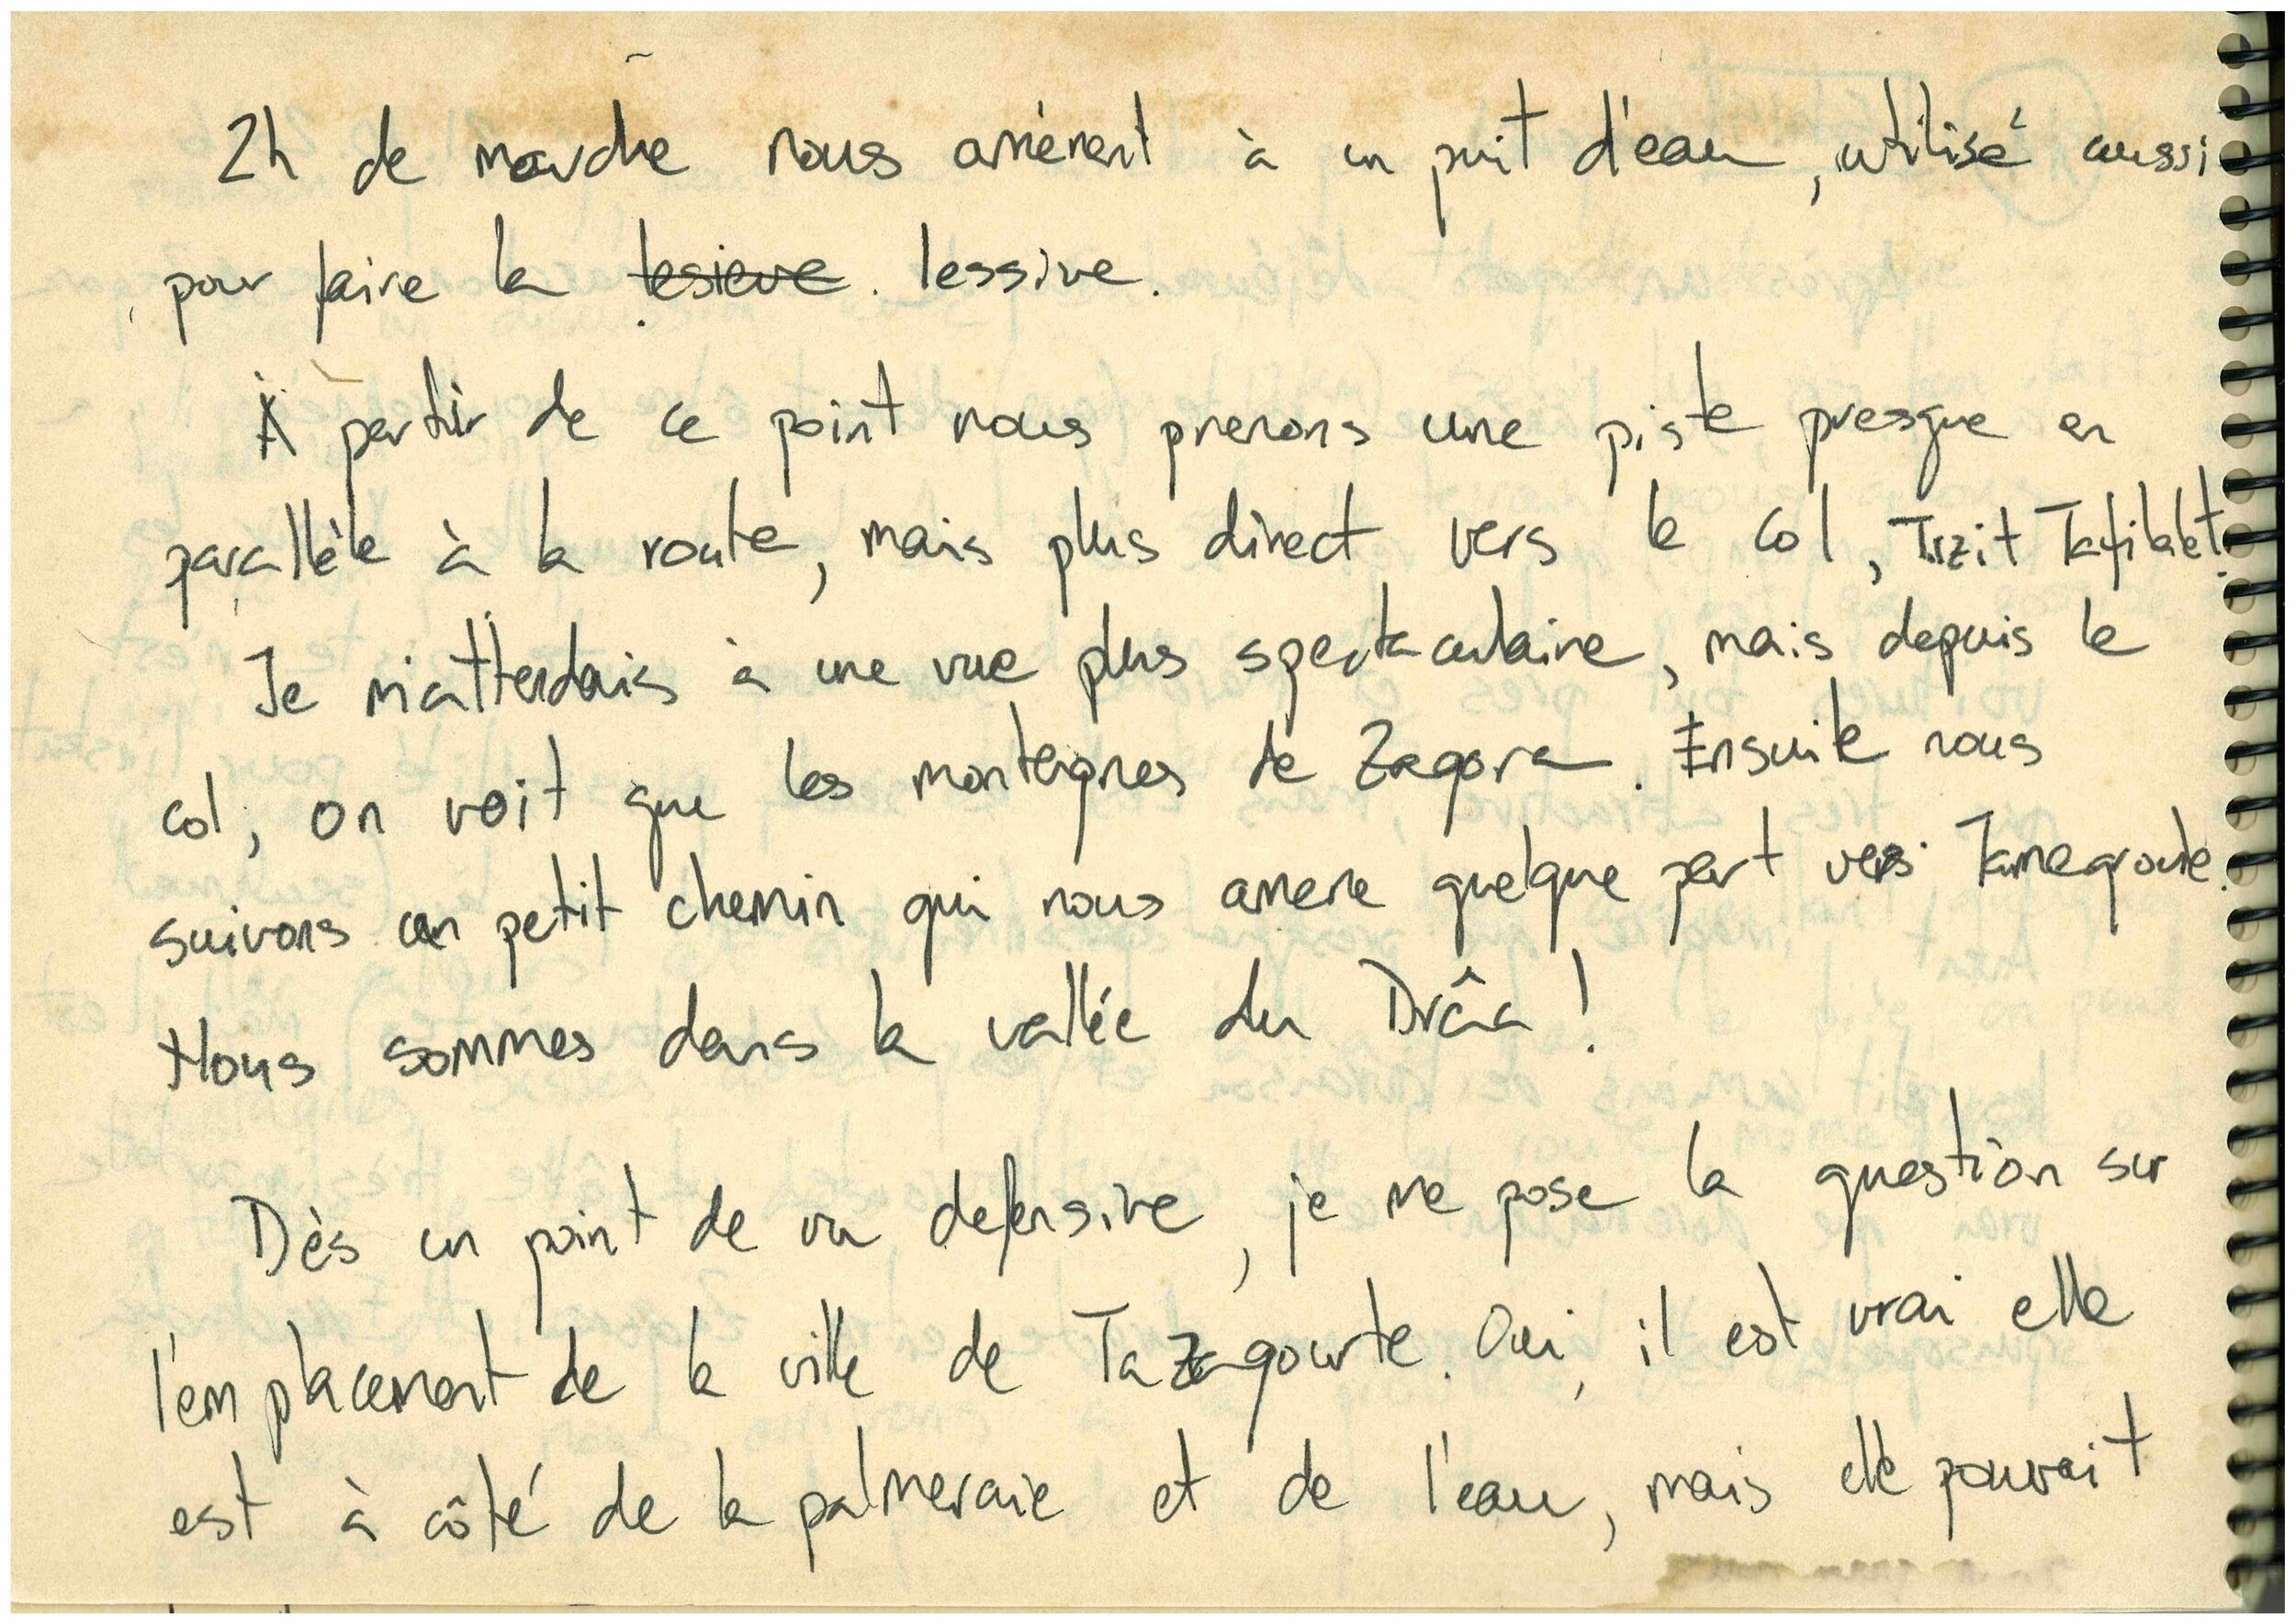 2h de marche nous amènent à un puit d'eau, utilisé aussi
pour faire la lesieve. lessive.
À partir de ce point nous prenons une piste presque en
parallèle à la route, mais plus direct vers le col, Tizit Tafilalet.
Je m'attendais à une vue plus spectaculaire, mais depuis le
col, on voit que les montagnes de Zagora. Ensuite nous
suivons un petit chemin qui nous amene quelque part vers Tamegroute.
Nous sommes dans la vallée du Drâa!
Dès un point de vu defensive, je me pose la question sur
l'emplacement de la ville de Tazagourte. Oui, il est vrai elle
est à côté de la palmeraie et de l'eau, mais elle pouvait